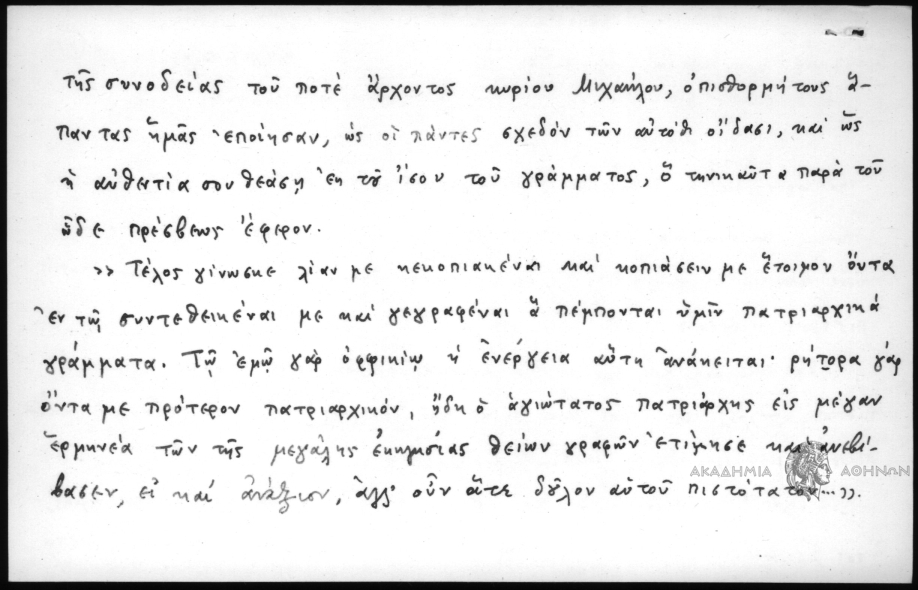 τῆς συνοδείας τοῦ ποτὲ ἄρχοντος κυρίου Μιχαήλου, ὀπισθορμήτους ἅ-
παντας ἡμᾶς ἐποίησαν, ὡς οἱ πάντες σχεδὸν τῶν αὐτόθι οἴδασι, καὶ ὡς
ἡ αὐθεντία σου θεάσῃ ἐκ τοῦ ἴσου τοῦ γράμματος, ὃ τηνικαῦτα παρὰ τοῦ
ὧδε πρέσβεως ἔφερον.
>> Τέλος γίνωσκε λίαν με κεκοπιακέναι καὶ κοπιάσειν με ἕτοιμον ὄντα
ἐν τῷ συντεθεικέναι με καὶ γεγραφέναι ἃ πέμπονται ὑμῖν πατριαρχικὰ
γράμματα. Τῷ ἐμῷ γὰρ ὀφφικίῳ ἡ ἐνέργεια αὕτη ἀνάκειται· ρήτορα γὰρ
ὄντα με πρότερον πατριαρχικόν, ἤδη ὁ ἁγιώτατος πατριάρχης εἰς μέγαν
ἑρμηνέα τῶν τῆς μεγάλης ἐκκλησίας θείων γραφῶν ἐτίμησε καὶ ἀνεβί-
βασεν, εἰ καὶ ἀνάξιον, ἀλλ' οὖν ἅτε δοῦλον αὐτοῦ πιστότατον...».
ΑΚΑΔΗΜΙΑ ΑΘΗΝΩΝ